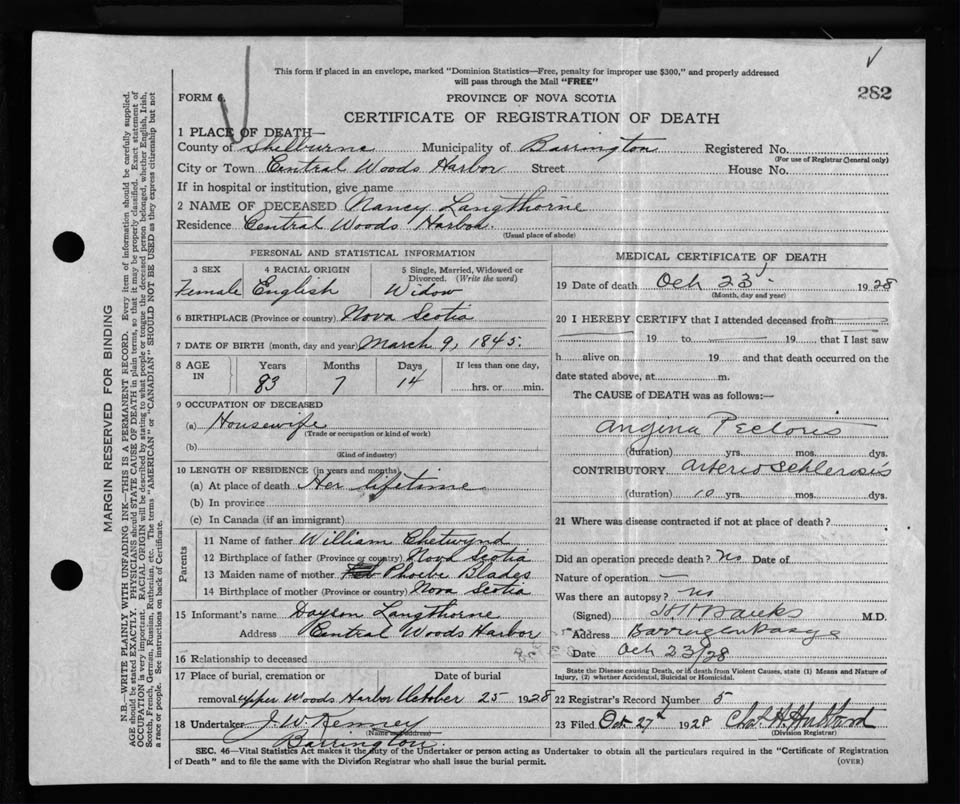 This form if placed in an envelope, marked "Dominion Statistics—Free, penalty for improper use $300," and properly addressed
will pass through the Mail "FREE"
282
FORM 6.
PROVINCE OF NOVA SCOTIA
CERTIFICATE OF REGISTRATION OF DEATH
1 PLACE OF DEATH—
County of Shelburne Municipality of Barrington Registered No.
(For use of Registrar General only)
City or Town Central Woods Harbor Street House No.
If in hospital or institution, give name
2 NAME OF DECEASED Nancy Langthorne
Residence Central Woods Harbor.
(Usual place of abode)
PERSONAL AND STATISTICAL INFORMATION
3 SEX 4 RACIAL ORIGIN 5 Single, Married, Widowed or
Divorced. (Write the word)
Female English Widow
6 BIRTHPLACE (Province or country) Nova Scotia
7 DATE OF BIRTH (month, day and year) March 9, 1845.
8 AGE IN Years Months Days If less than one day,
83 7 14 hrs. or min.
9 OCCUPATION OF DECEASED
(a) Housewife
(Trade or occupation or kind of work)
(b)
(Kind of industry)
10 LENGTH OF RESIDENCE (in years and months)
(a) At place of death Her lifetime
(b) In province
(c) In Canada (if an immigrant)
Parents
11 Name of father William Chetwynd
12 Birthplace of father (Province or country) Nova Scotia
13 Maiden name of mother Phoebe Blades
14 Birthplace of mother (Province or country) Nova Scotia
15 Informant's name Langthorne
Address Central Woods Harbor
16 Relationship to deceased
17 Place of burial, cremation or Date of burial
removal upper Woods Harbor October 25 1928
18 Undertaker J. W. Kenney
(Name and address)
Barrington.
MEDICAL CERTIFICATE OF DEATH
19 Date of death Oct 23 1928
(Month, day and year)
20 I HEREBY CERTIFY that I attended deceased from
19 to 19 , that I last saw
h alive on 19 and that death occurred on
date stated above, at m.
The CAUSE of DEATH was as follows:—
Angina Pectoris
(duration) yrs. mos. dys.
CONTRIBUTORY arterio schlerosis
(duration) 10 yrs. mos. dys.
21 Where was disease contracted if not at place of death?
Did an operation precede death? no Date of
Nature of operation —
Was there an autopsy? no
(Signed) M.D.
Address Barrington Passage
Date Oct 23/28
State the Disease causing Death, or in death from Violent Causes, state (1) Means and Nature of
Injury, (2) whether Accidental, Suicidal or Homicidal.
22 Registrar's Record Number 5
23 Filed Oct 27th 1928
(Division Registrar)
SEC. 46—Vital Statistics Act makes it the duty of the Undertaker or person acting as Undertaker to obtain all the particulars required in the "Certificate of Registration
of Death" and to file the same with the Division Registrar who shall issue the burial permit. (OVER)
MARGIN RESERVED FOR BINDING
N.B.—WRITE PLAINLY WITH UNFADING INK—THIS IS A PERMANENT RECORD. Every item of information should be carefully supplied.
AGE should be stated EXACTLY. PHYSICIANS should STATE CAUSE OF DEATH in plain terms, so that it may be properly classified. Exact statement of
OCCUPATION is very important. RACIAL ORIGIN will be described by stating to what people or tongue the deceased person belonged, whether English, Irish,
Scotch, French, German, Russian, Ruthenian, etc. The terms "AMERICAN" or "CANADIAN" SHOULD NOT BE USED as they express citizenship but not
a race or people. See instructions on back of Certificate.